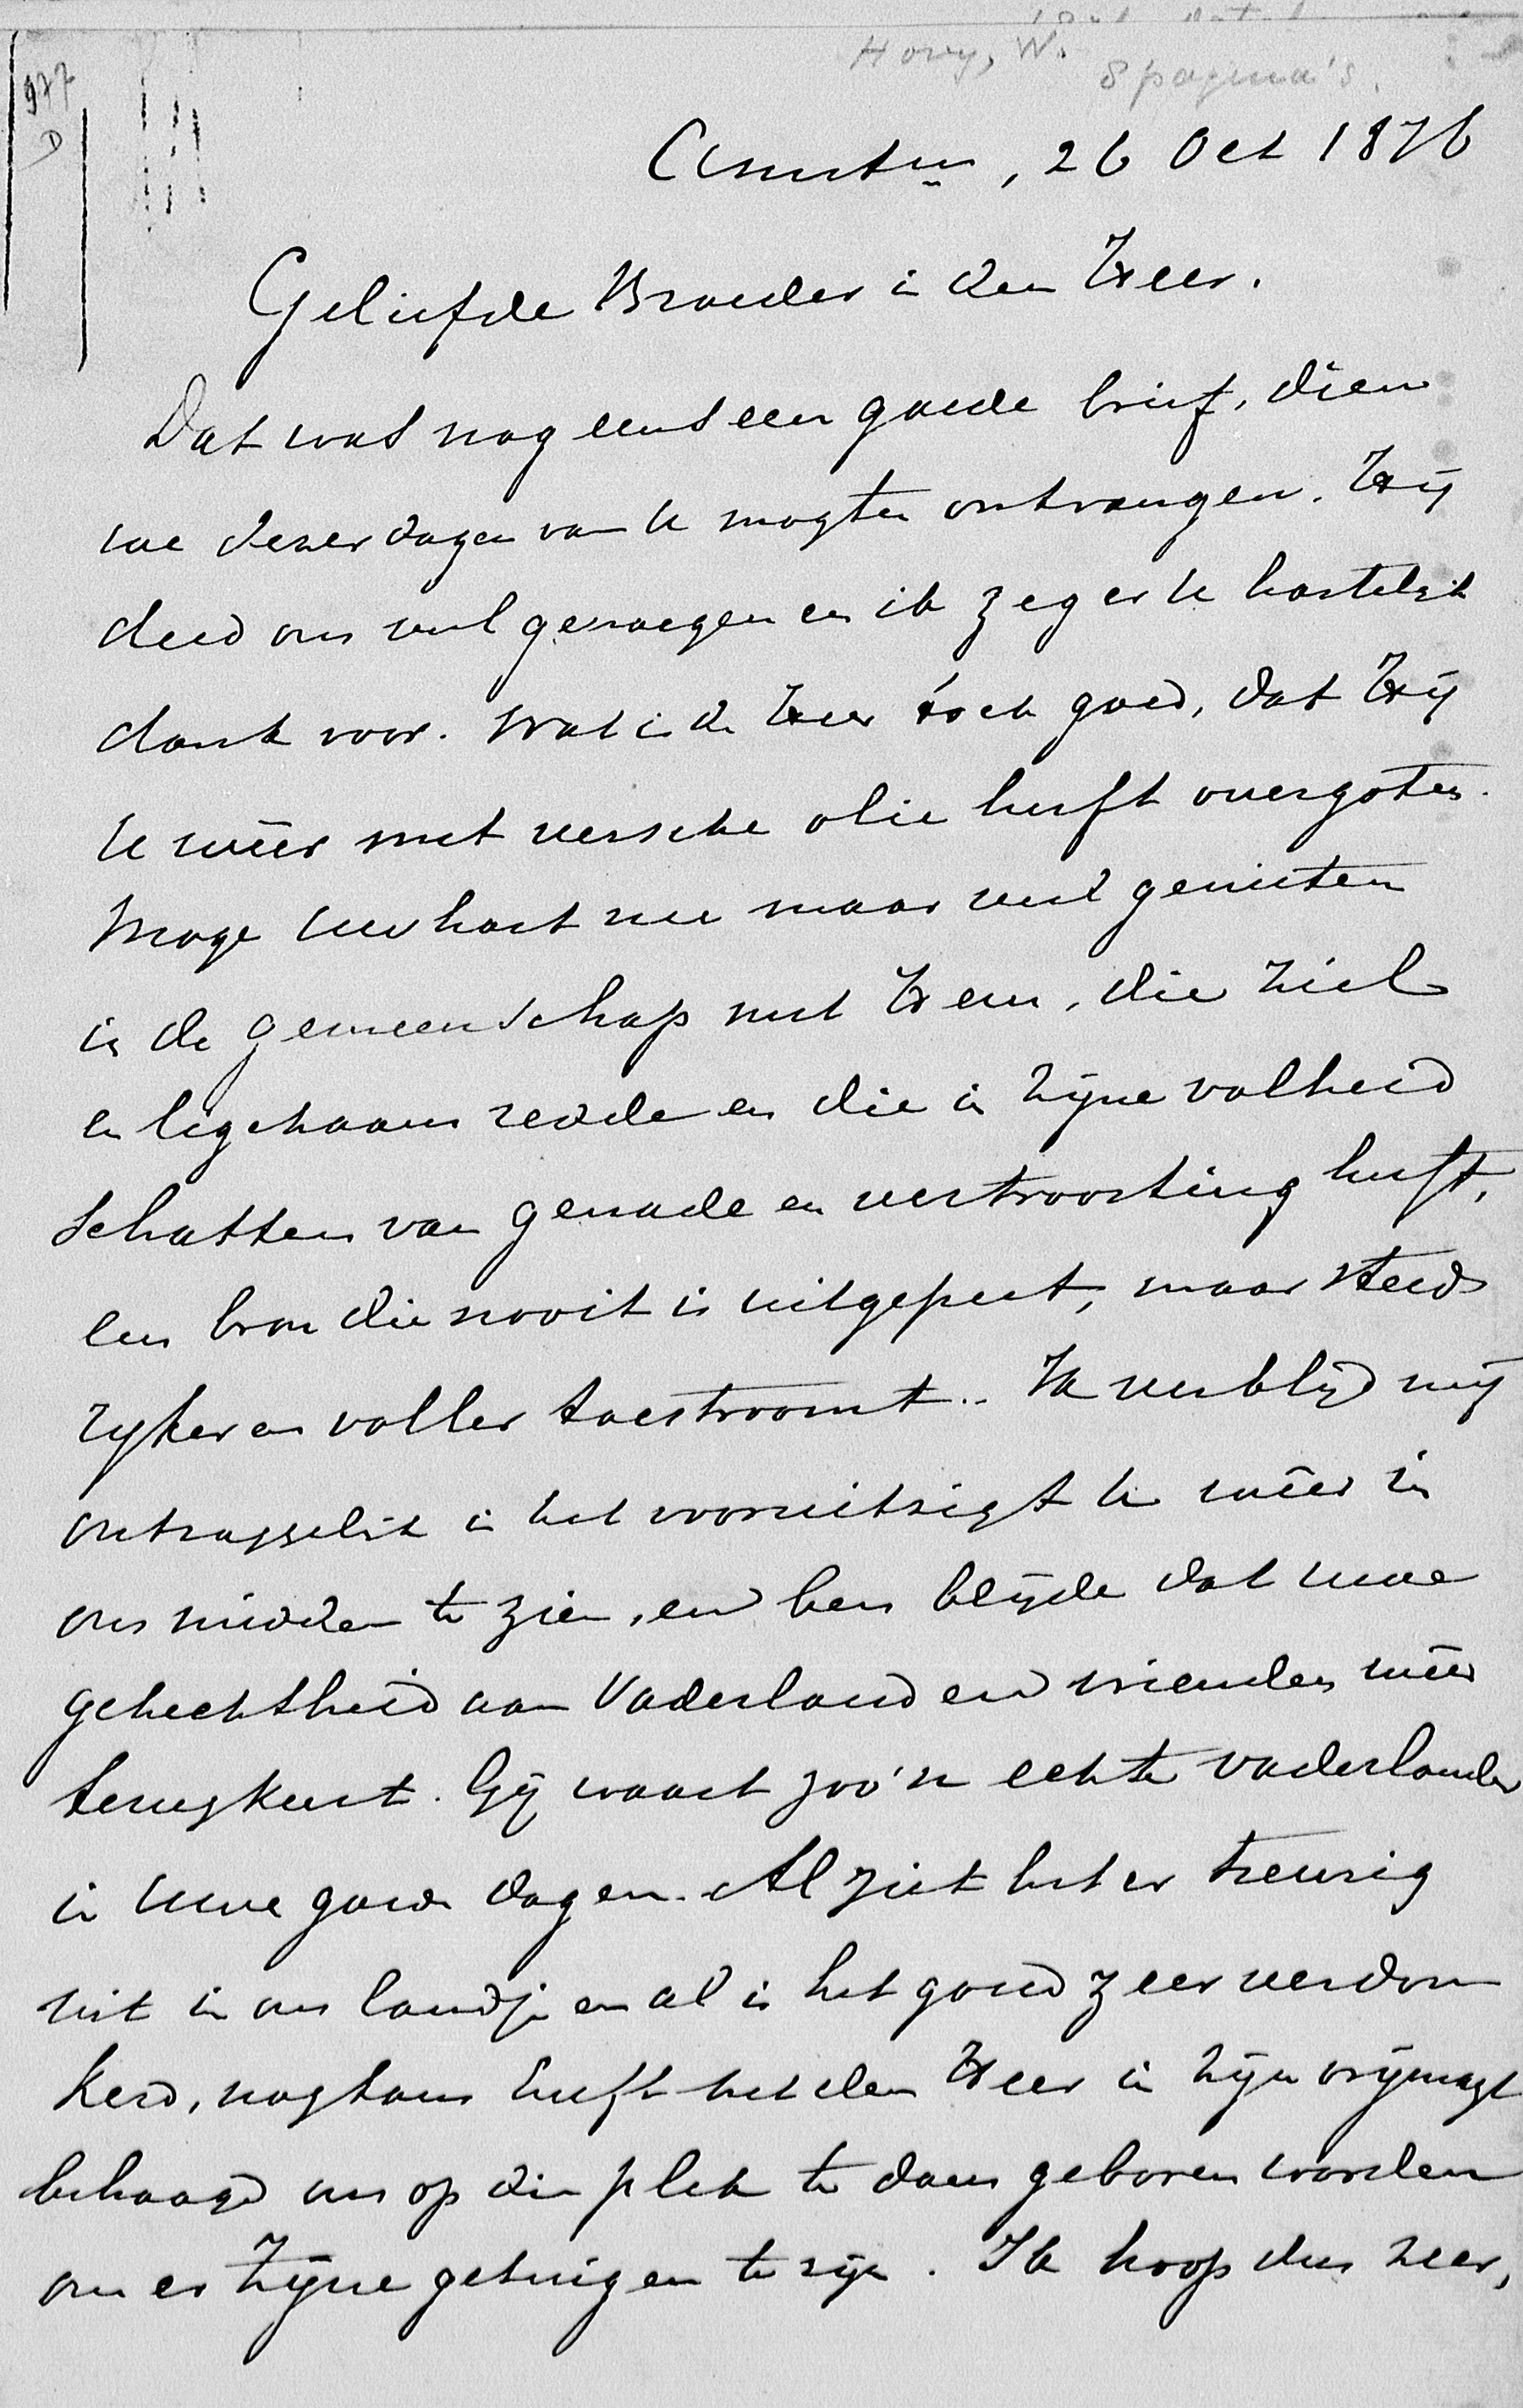 Hovy, W.
8 pagina's.
977
D
Amstm, 26 Oct 1876
Geliefde Broeder in den Heer.
Dat was nog eens een goede brief, dien
we dezer dagen van U mogten ontvangen. Hij
deed ons veel genoegen en ik zeg er U hartelijk
dank voor. Wat is de Heer tóch goed, dat Hij
U wêer met versche olie heeft overgoten.
Moge uw hart nu maar veel genieten
in de gemeenschap met Hem, die ziel
en ligchaam redde en die in Zijne volheid
schatten van genade en vertroosting heeft,
een bron die nooit is uitgeput, maar steeds
rijker en voller toestroomt.. Ik verblijd mij
ontzaggelijk in het vooruitzigt U wêer in
ons midden te zien, en ben blijde dat uwe
gehechtheid aan Vaderland en vrienden wêer
terugkeert. Gij waart zoo'n echte vaderlander
in uwe goede dagen. Al ziet het er treurig
uit in ons landje en al is het goud zeer verdon
kerd, nogtans heeft het den Heer in Zijn vrijmagt
behaagd ons op die plek te doen geboren worden
om er Zijne getuigen te zijn. Ik hoop dus zeer,